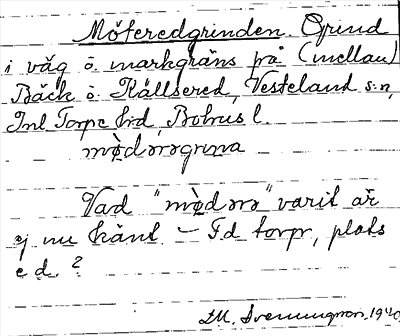 Möteredgrinden. Grind
i väg ö. markgräns på (mellan)
Bäck o. Källsered, Västerland s:n,
Inl Torpe hrd, Bohus l.
mø̀dərəgrına
Vad "mø̀dərə" varit är
ej nu känt – Fd torpr, plats
e d. ?
M. Svenungsson. 1940